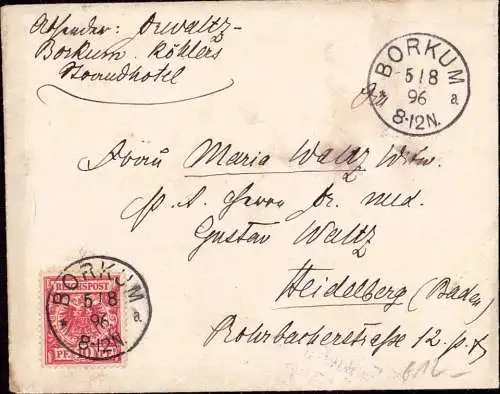 Absender: Dr Waltz-
Borkum. Köhlers
Strandhotel
BORKUM
5/8
96
a
8-12N.
An
Frau Maria Waltz Wtw.
p. A. Herrn Dr. med.
Gustav Waltz
Heidelberg (Baden)
Rohrbacherstraße 12. p. t
REICHSPOST
BORKUM
5/8
96
* a
8-12N.
PFENNIG